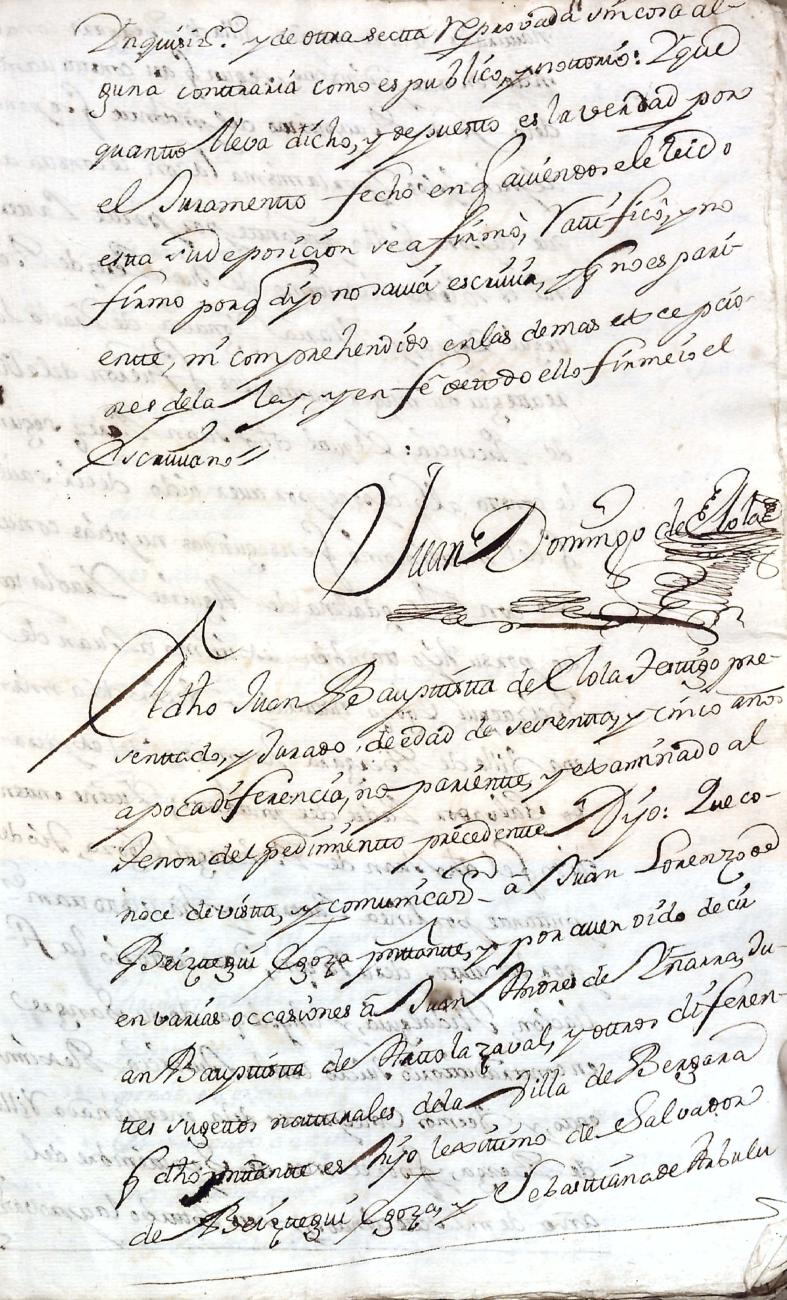 Ynquisizn. y de otra secta reprovada sin cosa al-
guna contraria como es publico, y nottorio: Y que
quantto lleva dicho, y depuesto es la verdad por
el Juramentto fecho en q aviendosele leido
esta su deposicion se afirmò, ratificò, y no
firmo porq dijo no savia escrivir, y q no es pari-
entte, ni comprehendido en las demas excepcio-
nes de la Ley, y en feè de todo ello firmè io el
Escrivano=
Juan Domingo de Elola
El dho Juan Bauptista de Elola Testigo pre-
sentado, y Jurado, de edad de settentta, y cinco años
a poca diferencia, no parientte, y examinado al
Tenor del pedimientto precedentte Dijo: Que co-
noce de vista, y comunicazn. â Juan Lorenzo de
Beiztegui Egoza pnttantte, y por aver oido decir
en varias occasiones â Juan Andres de Yñarra, Ju-
an Bauptista de Aritto lazaval, y ottros diferen-
ttes sugettos natturales de la Villa de Bergara
q dho pnttantte es Hijo lexittimo de Salvador
de Beiztegui Egoza, y Sebasttiana de Arbulu